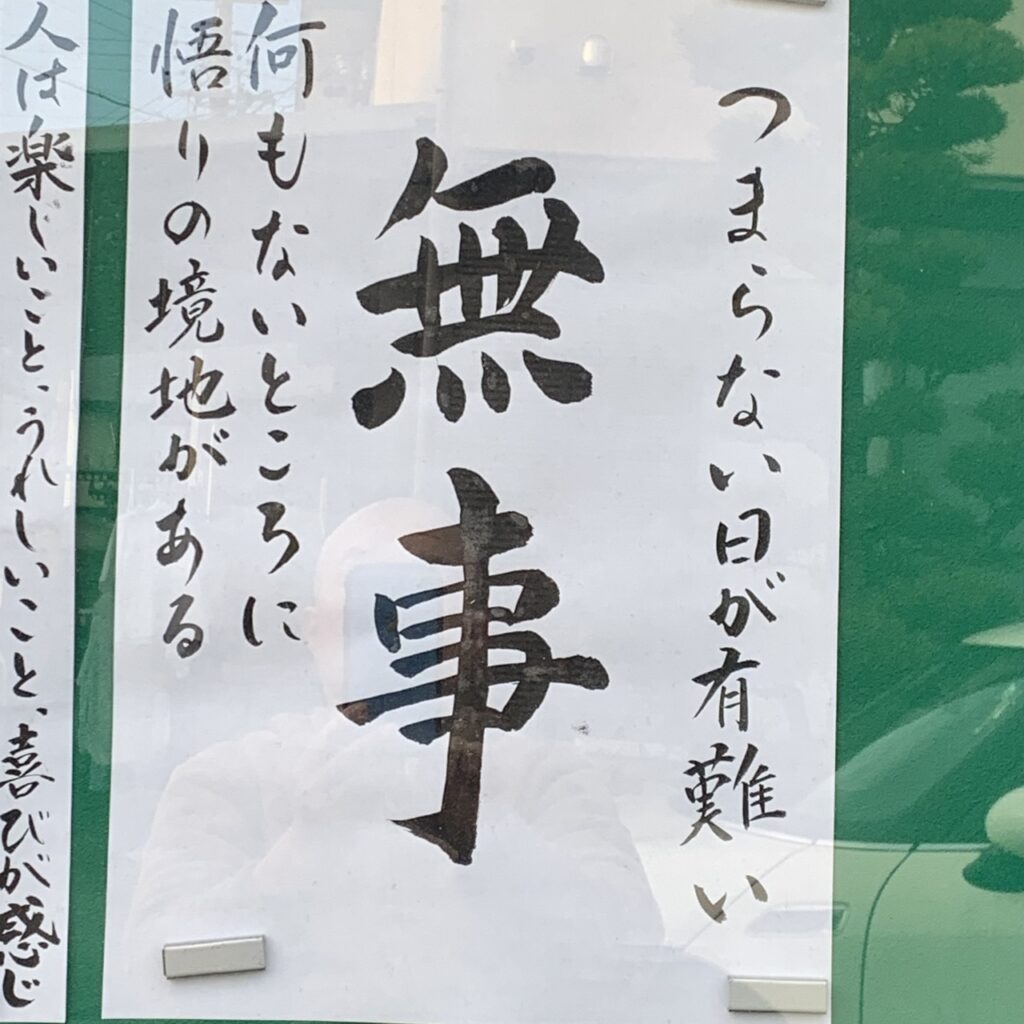 つまらない日が有難い
無事
何もないところに
悟りの境地がある
人は楽しいこと、うれしいこと、喜びが感じ